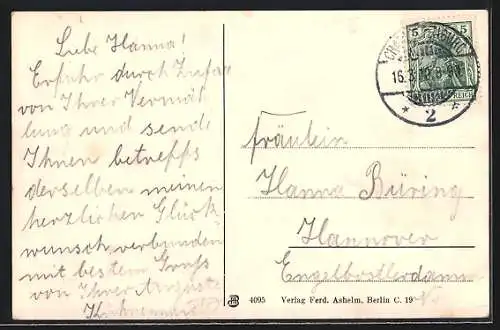 Liebe Hanna!
Erfuhr durch Zufall
von Ihrer Vermäh
lung und sende
Ihnen betreffs
derselben meinen
herzlichen Glück
wunsch verbunden
mit bestem Gruß
von Ihrer Auguste
5 5
16.3.10. 8-9N
REICH
* 2
Fräulein
Hanna Büring
Hannover
Engelbostlerdamm
4095 Verlag Ferd. Ashelm, Berlin C. 19